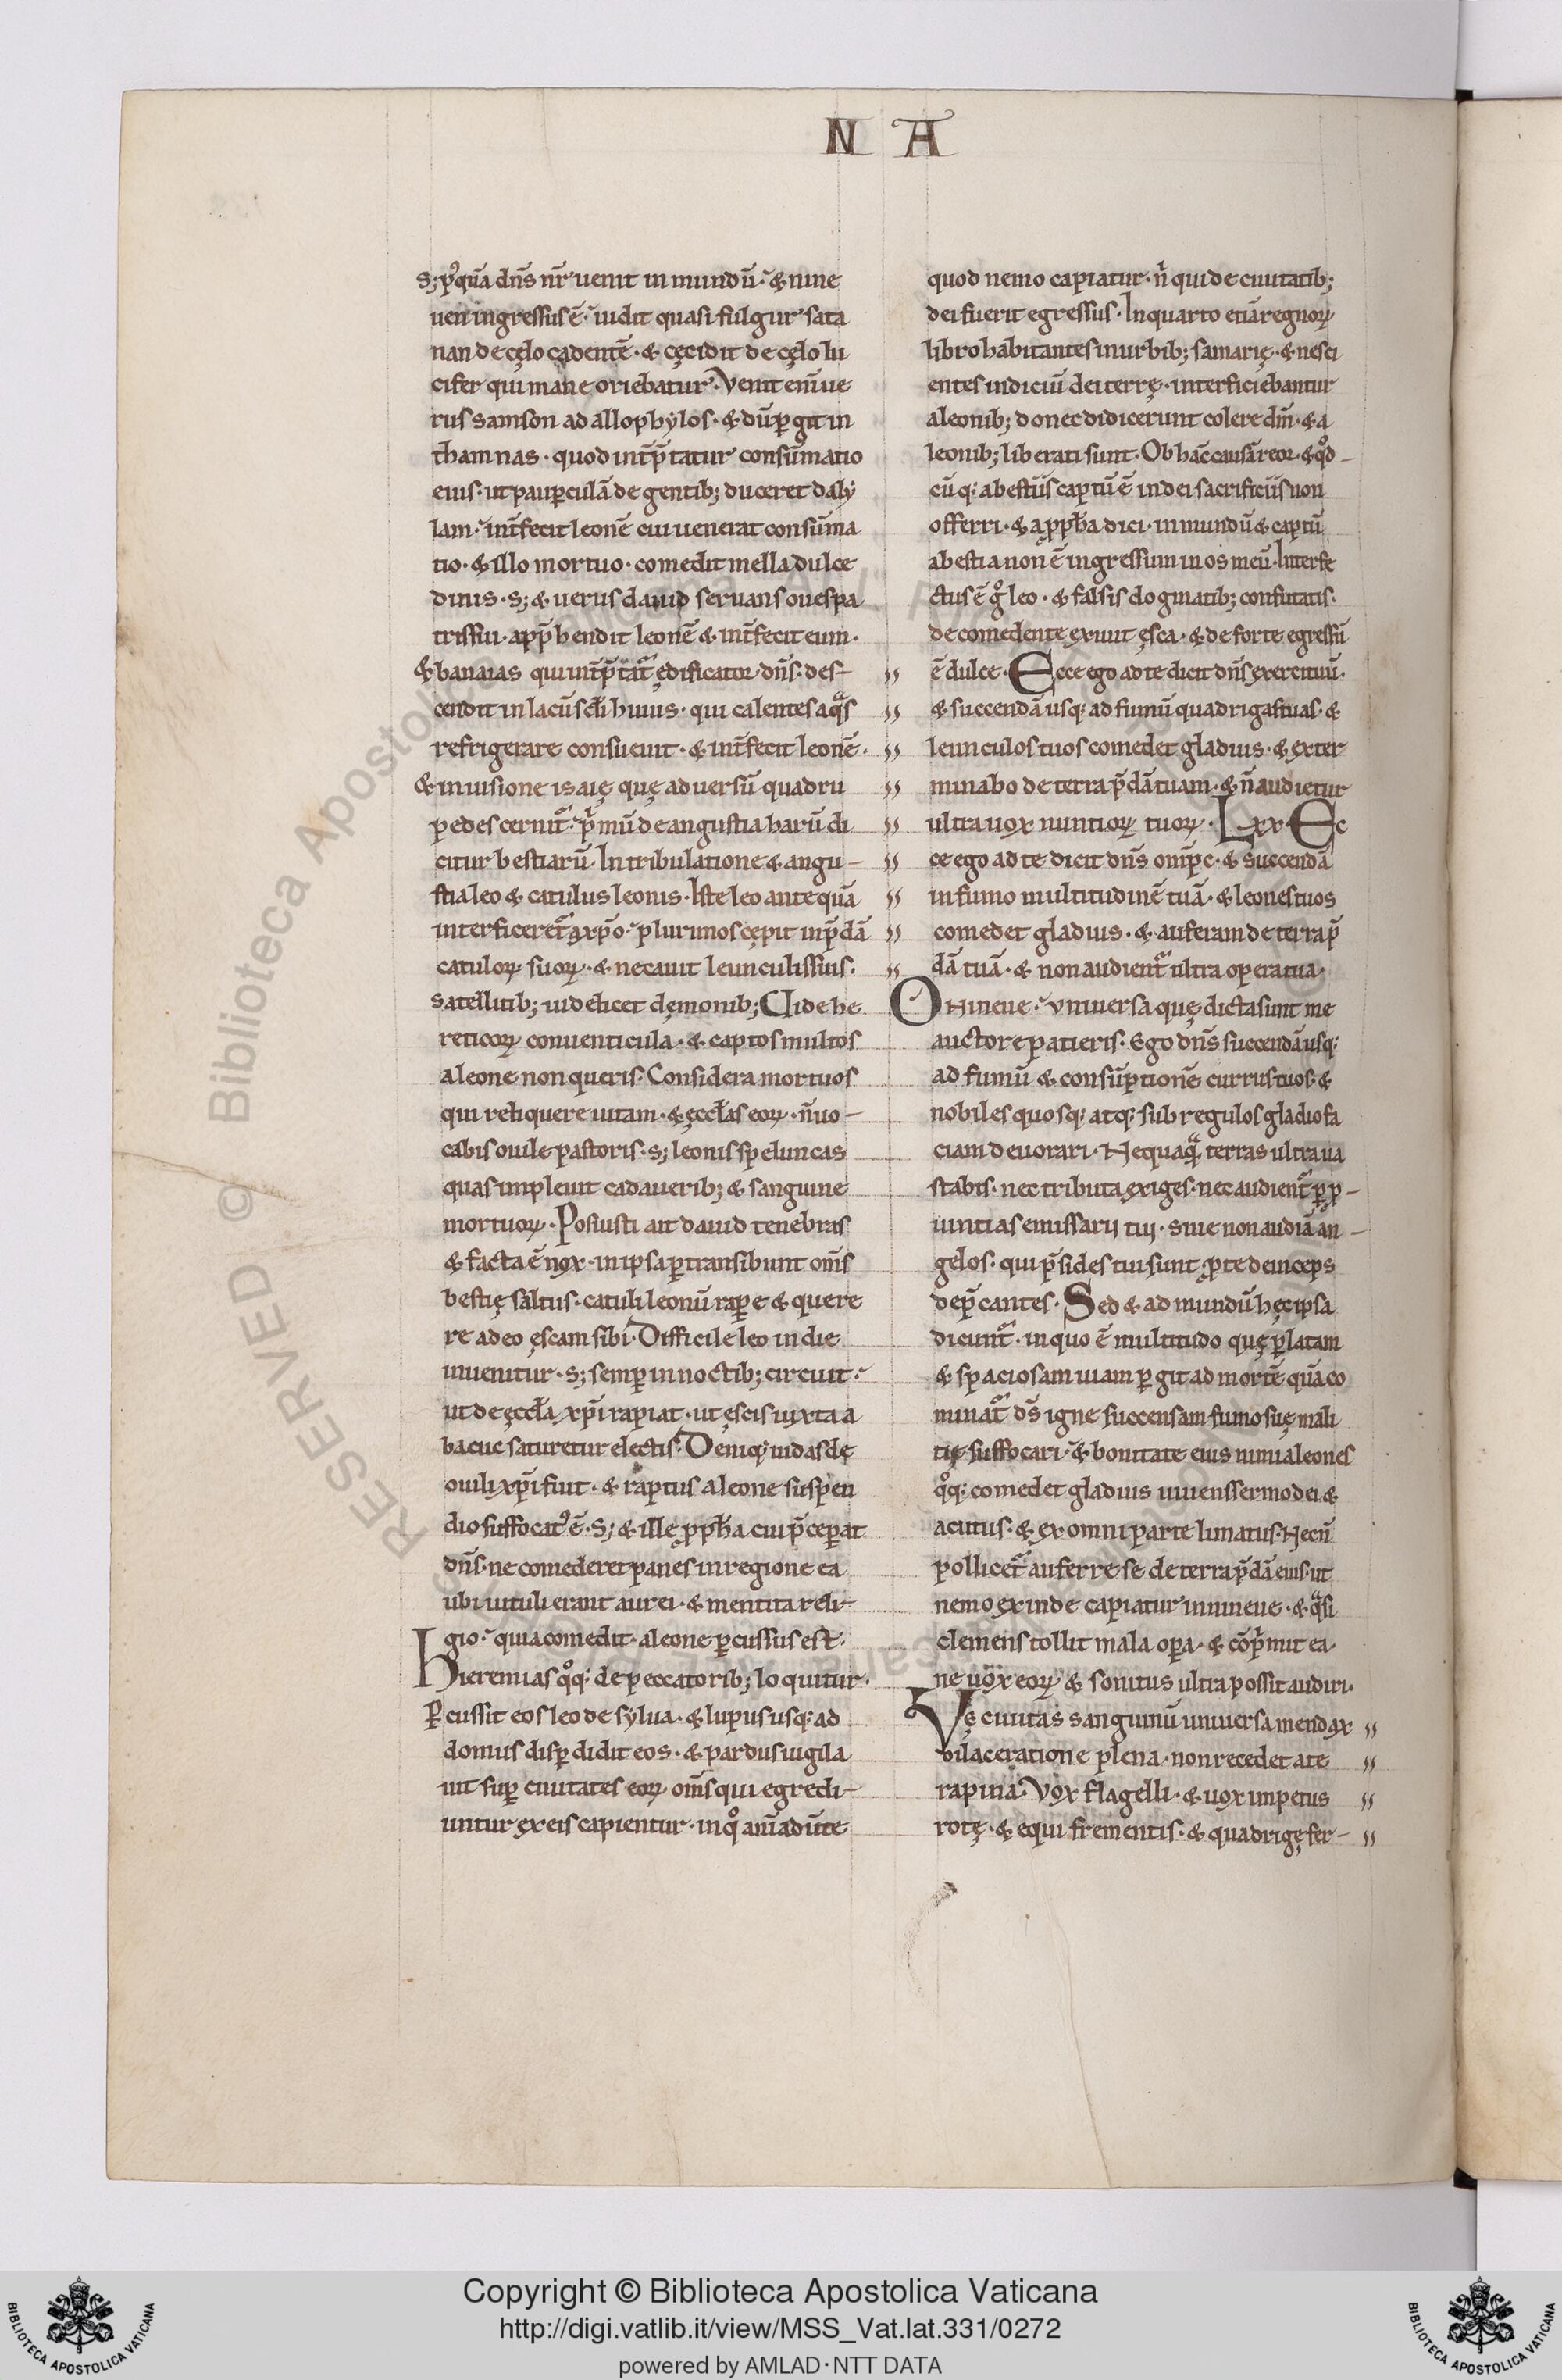 N A
s; p᷒quā dn̄s nr̄ uenit in mundū. & nine
uen ingressus ē. uidit quasi fulgur sata
nan de cęlo cadentē. & cęcidit de cęlo lu
cifer qui mane oriebatur. Venit eni᷒ ue
rus samson ad allophylos. & dū ꝑgit in
thamnas. quod int̄p̄tatur consūmatio
eius. ut pauꝑculā de gentib; duceret daly
lam. int̄fecit leonē cui uenerat consūma
tio. & illo mortuo. comedit mella dulce
dinis. s; & uerus dauid seruans oues pa
tris sui. app̄hendit leonē & int̄fecit eum.
& banaias qui int̄p̄tat᷒ ędificator dn̄s. des-
cendit in lacū scl̄i huius. qui calentes aqas
refrigerare consueuit. & int̄fecit leonē.
& in uisione isaię quę aduersū quadru
pedes cernit᷒. p̄mū de angustia harū di
citur bestiarū. In tribulatione & angu-
stia leo & catulus leonis. Iste leo antequā
interficeret᷒ a xp̄o. plurimos cępit in p̄dā
catuloꝝ suoꝝ. & necauit leunculis suis.
satellitib; uidelicet dęmonib; Vide he
reticoꝝ conuenticula. & captos multos
a leone non queris. Considera mortuos
qui reliquere uitam. & ęccl̄as eoꝝ. n̄ uo-
cabis ouile pastoris. s; leonis speluncas
quas impleuit cadauerib; & sanguine
mortuoꝝ. Posuisti ait dauid tenebras
& facta ē nox. in ipsa ꝑtransibunt om̄s
bestię saltus. catuli leonū rapere & quere
re a deo ęscam sibi. Difficile leo in die
inuenitur. s; semꝑ in noctib; circuit.
ut de ęccl̄a xp̄i rapiat. ut ęscis iuxta a
bacuc saturetur electis. Deniq; iudas de
ouili xp̄i fuit. & raptus a leone suspen
dio suffocat᷒ ē. S; & ille ꝓph̄a cui p̄ceperat
dn̄s. ne comederet panes in regione ea
ubi uituli erant aurei. & mentita reli-
gio. quia comedit. a leone ꝑcussus est.
Hieremias qoq; de peccatorib; loquitur.
ꝑcussit eos leo de sylua. & lupus usq; ad
domus disꝑdidit eos. & pardus uigila
uit suꝑ ciuitates eoꝝ. om̄s qui egredi-
untur ex eis capientur. in qo
quod nemo capiatur. n̄ qui de ciuitatib;
dei fuerit egressus. In quarto etiā regnoꝝ
libro habitantes in urbib; samarię. & nesci
entes iudiciū dei terrę. interficiebantur
a leonib; donec didicerunt colere dm̄. & a
leonib; liberati sunt. Ob hāc causā reor. & qod-
cūq; a bestiis captū ē in dei sacrificiis non
offerri. & a ꝓph̄a dici. inmundū & captū
a bestia non ē ingressum in os meū. Interfe
ctus ē go leo. & falsis dogmatib; confutatis.
de comedente exiuit ęsca. & de forte egressū
ē dulce. Ecce ego ad te dicit dn̄s exercituū.
& succendā usq; ad fumū quadrigas tuas. &
leunculos tuos comedet gladius. & exter
minabo de terra p̄dā tuam. & n̄ audietur
ultra uox nuntioꝝ tuoꝝ. Lxx. Ec
ce ego ad te dicit dn̄s omp̄c. & succendā
in fumo multitudinē tuā. & leones tuos
comedet gladius. & auferam de terra p̄
dā tuā. & non audient᷒ ultra opera tua.
O Nineue. Vniuersa quę dicta sunt me
auctore patieris. Ego dn̄s succendā usq;
ad fumū & consūptionē currus tuos. &
nobiles quosq; atq; subregulos gladio fa
ciam deuorari. Nequaqa terras ultra ua
stabis. nec tributa exiges. nec audient᷒ ꝑ ꝓ-
uintias emissarij tui. siue non audiā an-
gelos. qui p̄sides tui sunt ꝓ te deinceps
dep̄cantes. Sed & ad mundū hęc ipsa
dicunt᷒. in quo ē multitudo quę ꝑ latam
& spaciosam uiam ꝑgit ad mortē. quā co
minat᷒ ds̄ igne succensam fumo suę mali
tię suffocari. & bonitate eius nimia leones
qoq; comedet gladius uiuens sermo dei &
acutus. & ex omni parte limatus. Necn̄
pollicet᷒ auferre se de terra p̄dā eius. ut
nemo exinde capiatur in nineue. & qasi
clemens tollit mala oꝑa. & cōp̄mit ea.
ne uox eoꝝ & sonitus ultra possit audiri.
Vę ciuitas sanguinū uniuersa mendax
dilaceratione plena. non recedet a te
rapina. Vox flagelli. & uox impetus
rotę. & equi frementis. & quadrigę fer-
Copyright © Biblioteca Apostolica Vaticana
http://digi.vatlib.it/view/MSS_Vat.lat.331/0272
powered by AMLAD·NTT DATA
BIBLIOTECA APOSTOLICA VATICANA
BIBLIOTECA APOSTOLICA VATICANA